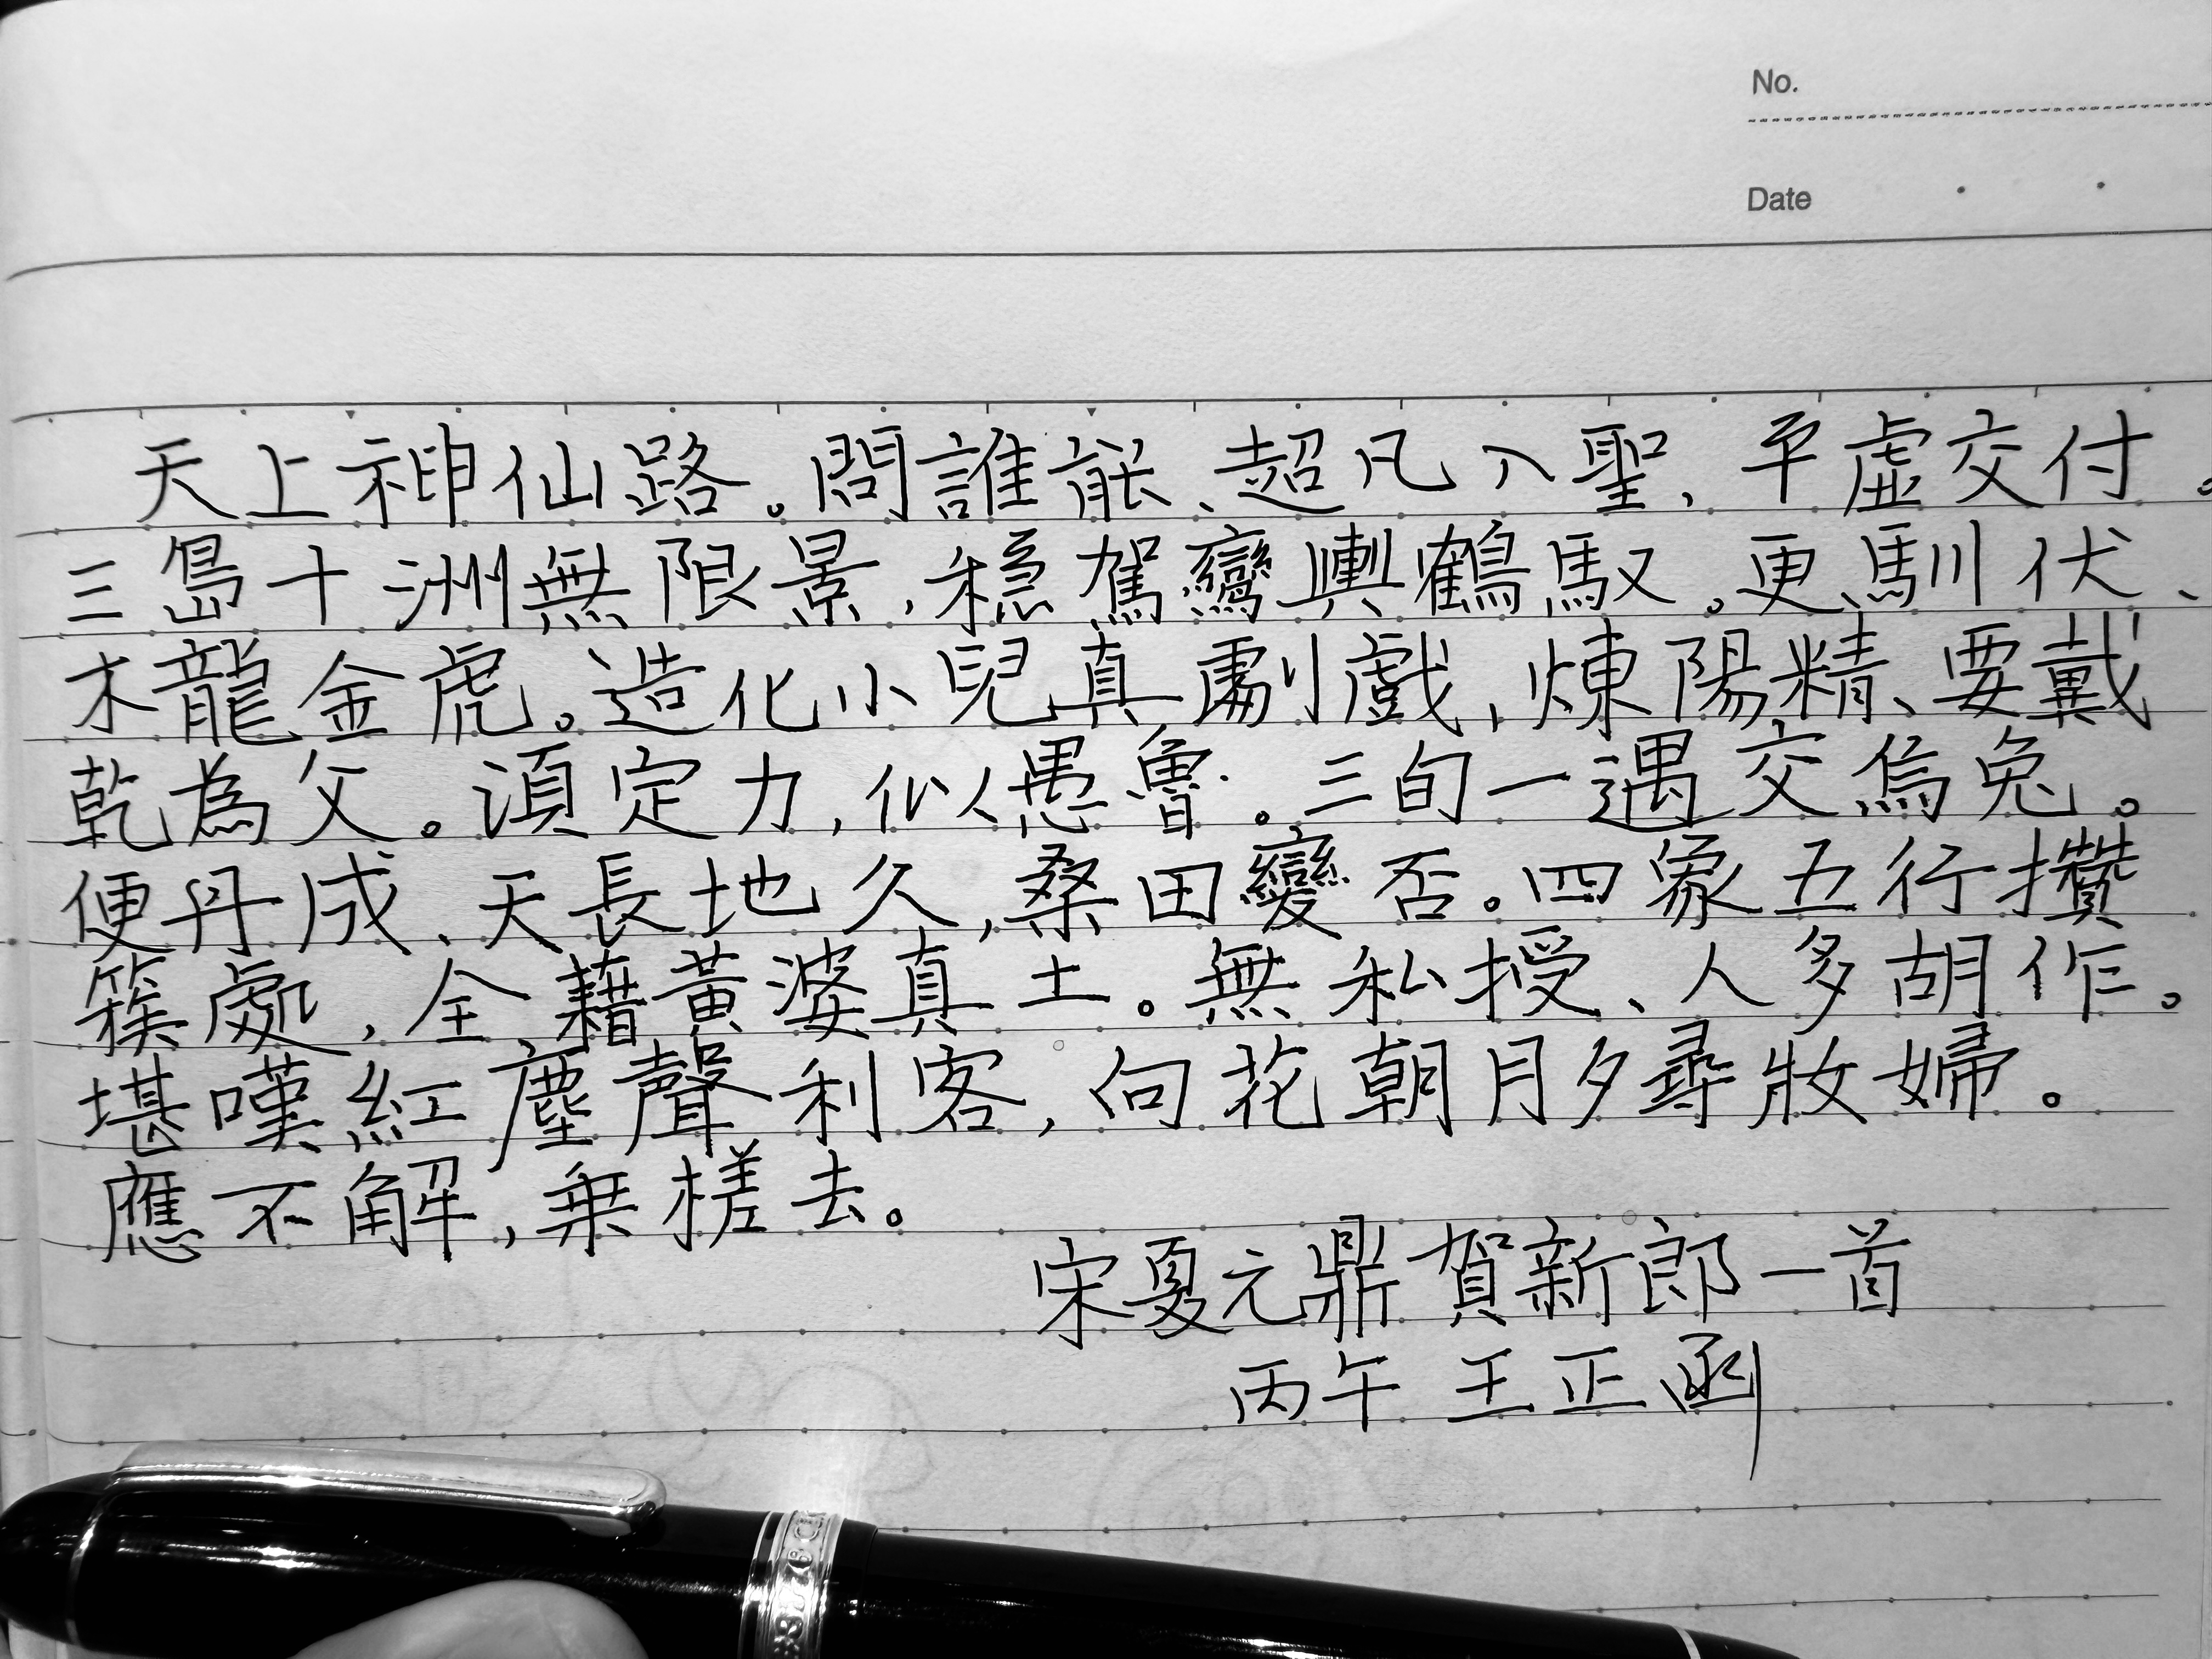 No.
Date
天上神仙路。問誰能、超凡入聖，平虛交付。
三島十洲無限景，穩駕鸞輿鶴馭。更馴伏、
木龍金虎。造化小兒真劇戲，煉陽精、要戴
乾為父。須定力，似愚魯。三旬一遇交烏兔。
便丹成、天長地久，桑田變否。四象五行攢
簇處，全藉黃婆真土。無私授、人多胡作。
堪嘆紅塵聲利客，向花朝月夕尋妝婦。
應不解，乘槎去。
宋夏元鼎賀新郎一首
丙午 王正函